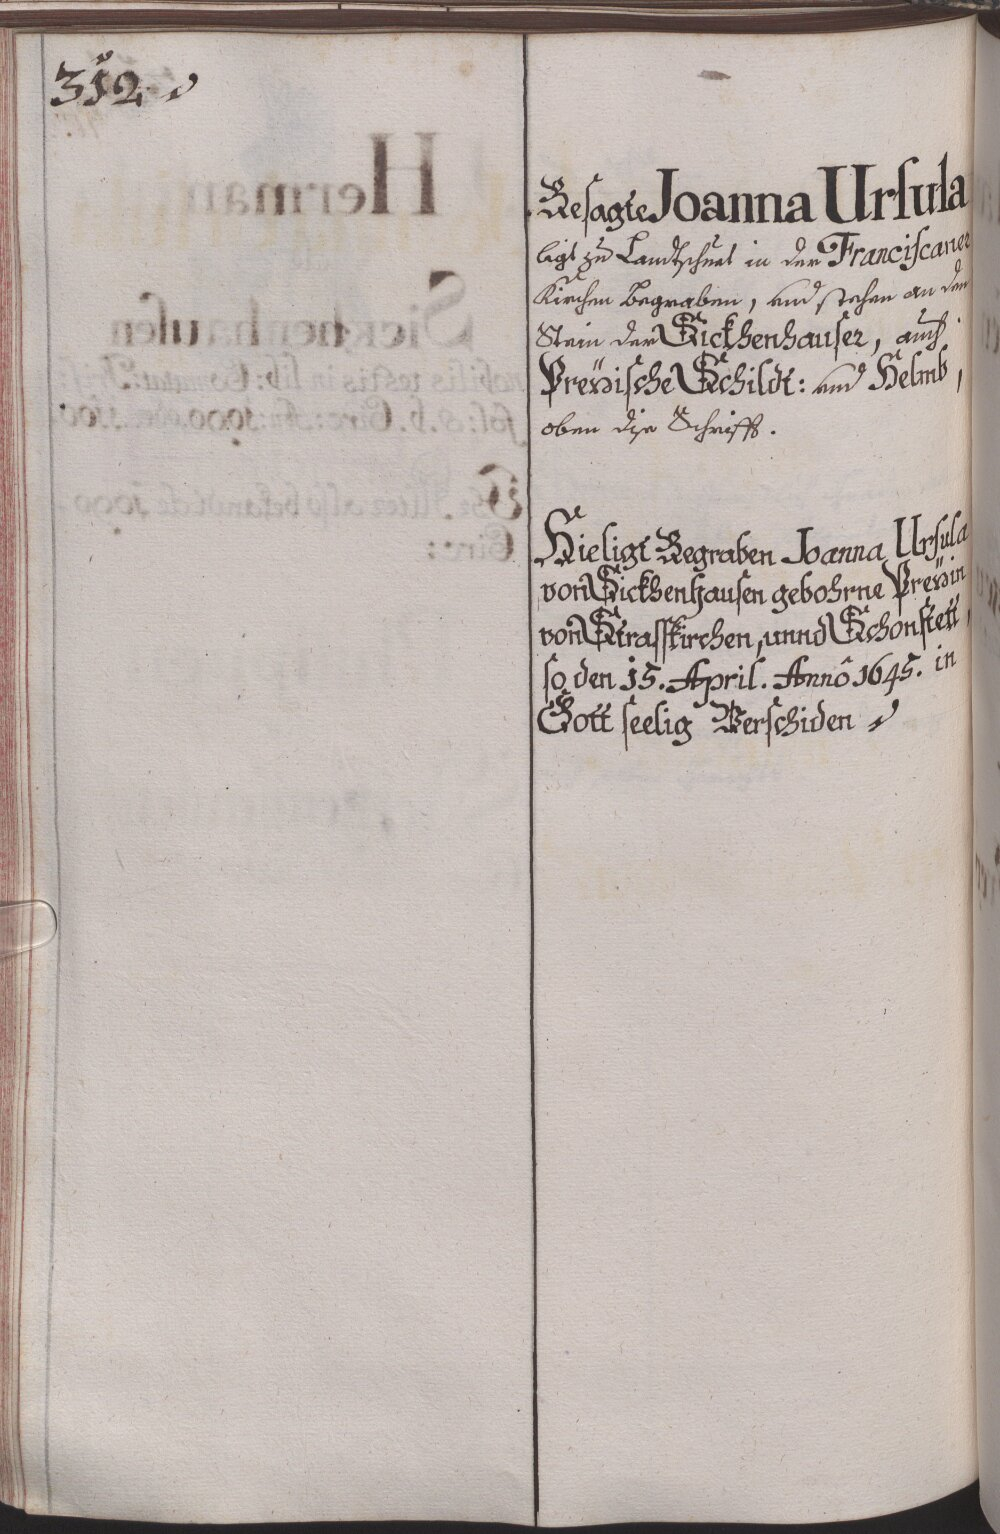 312
Besagte Joanna Ursula
ligt zu Landtshuet in der Franciscaner
Kirchen begraben, und stehen an den
Stain der Sickhenhauser, auch
Preÿsische Schildt: und Helmb,
oben die Schrifft.
Hie ligt Begraben Joanna Ursula
von Sickhenhausen gebohrne Preÿsin
von Strasskirchen, unnd Schonstett,
so den 15. April. Anno 1645. in
Gott seelig Verschiden